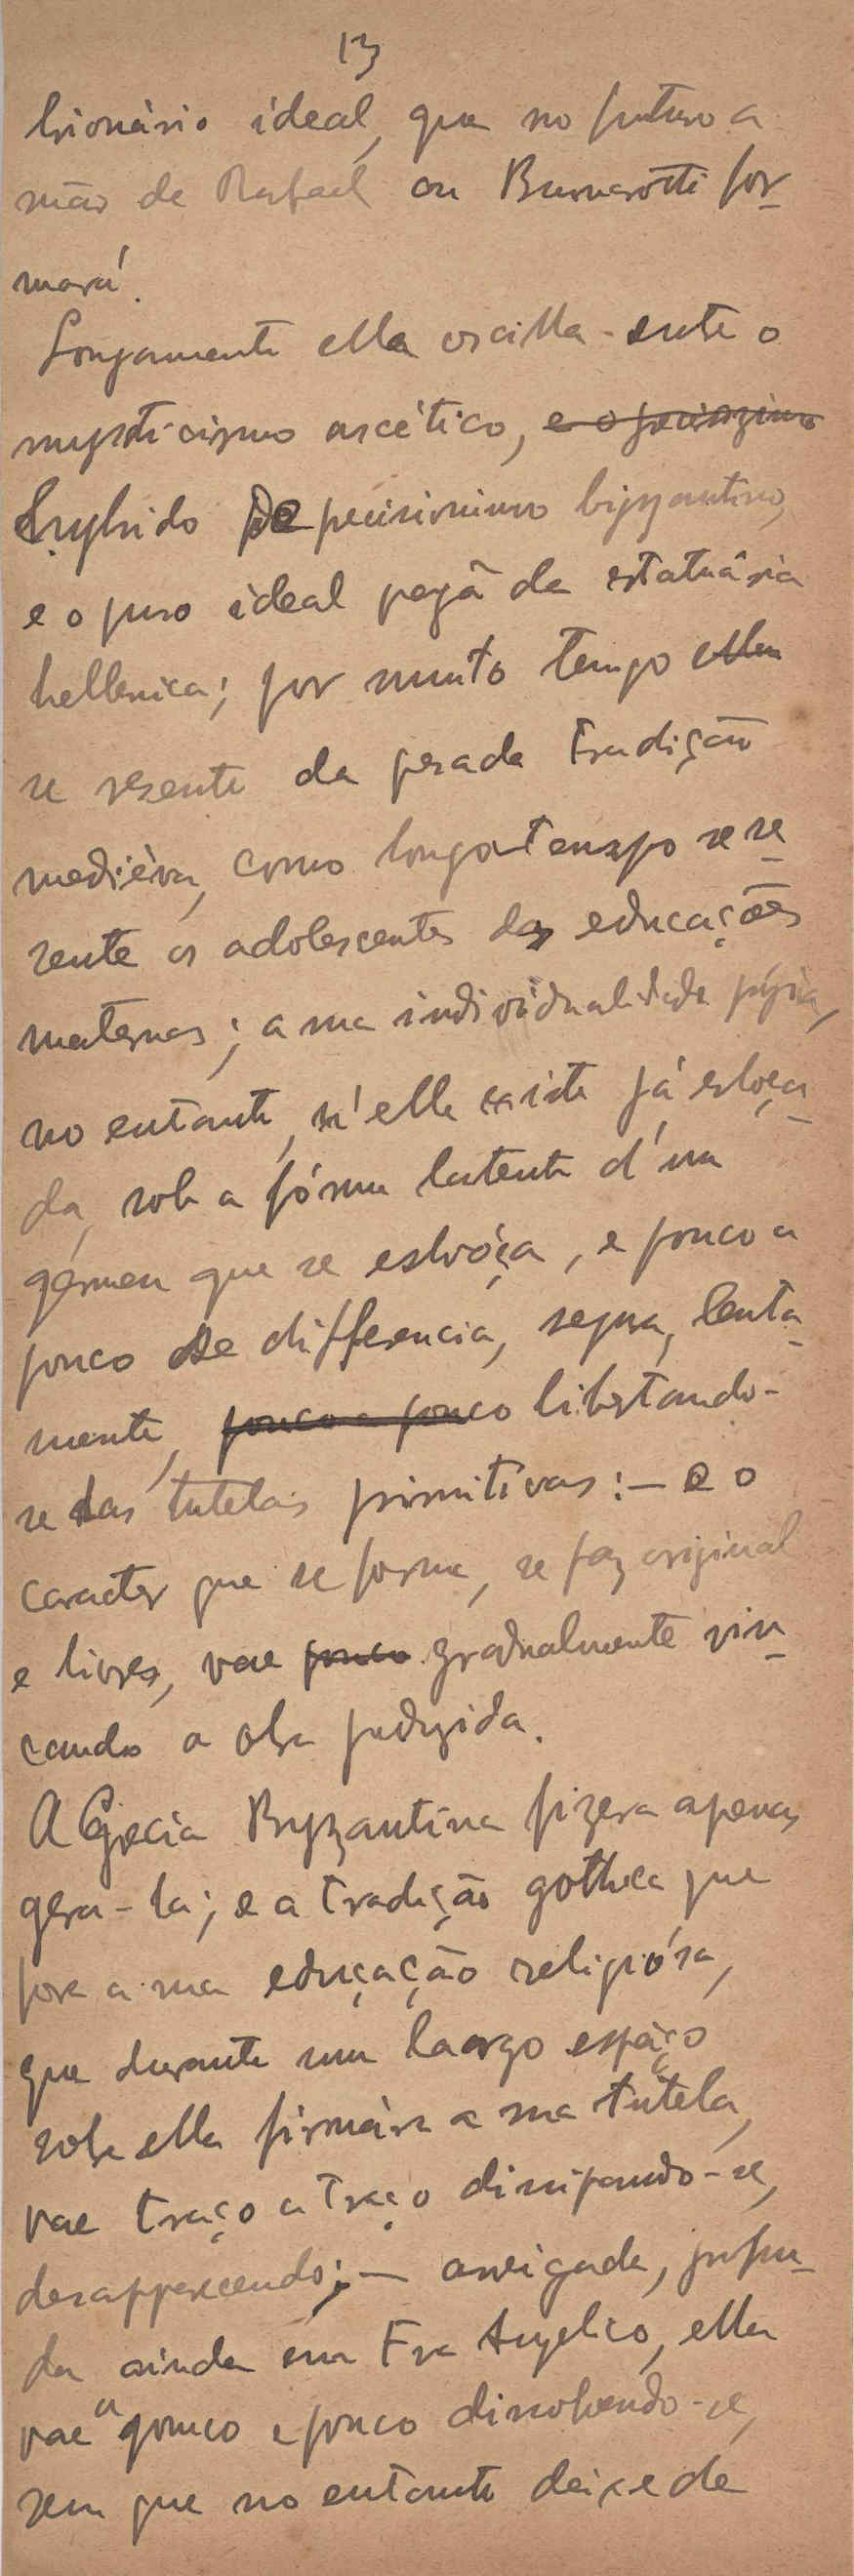 13
brionário ideal, que no futuro a
mão de Rafael ou Buonarotti for-
mará.
Longamente ella oscilla entre o
mysticismo ascético, e o
hybrido de precisionismo byzantino,
e o puro ideal pagã da estatuária
hellenica; por muito tempo ella
se resente da pesada tradição
mediéva, como longo tempo se re-
sente os adolescentes das educações
maternas; a sua individualidade própria,
no entante, n'elle existe já esboça-
da, sob a fórma latente d'um
gérmen que se esbóça, e pouco a
pouco se differencia, segura, lenta-
mente, pouco a pouco libertando-
se das tutelas primitivas:— e o
caracter que se forma, se faz original
e livres, vae pouco gradualmente vin-
cando a obra produzida.
A Grecia Byzantina fizera apenas
gera-la; e a tradição gothica que
fora a sua educação religiósa,
que durante um laorgo espaço
sobre ella firmára a sua tutela,
vae traço a traço dissipando-se,
desapparecendo;— arreigada, profun-
da ainda em Fra Angelico, ella
vae a pouco e pouco dissolvendo-se,
sem que no entante deixe de